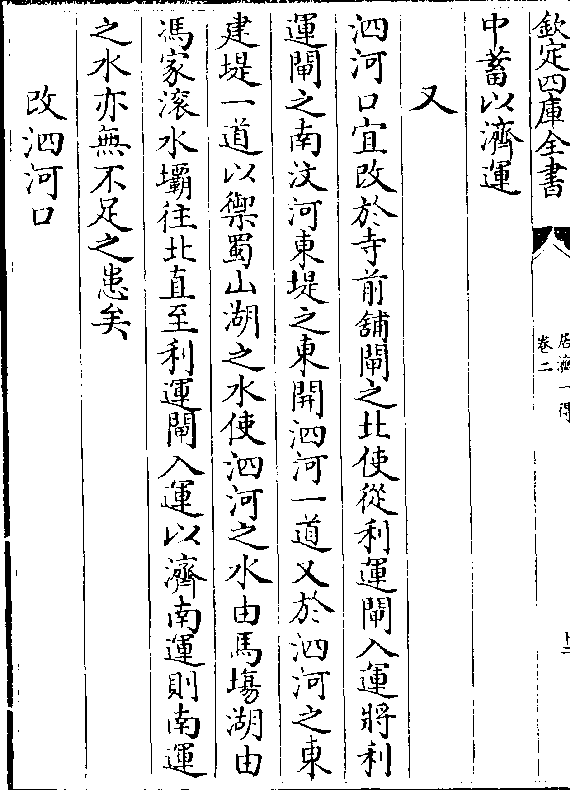 欽定四庫全書
居濟一得
卷二
中蓄以濟運
又
泗河口宜改於寺前舖閘之北使從利運閘入運將利
運閘之南汶河東堤之東開泗河一道又於泗河之東
建堤一道以禦蜀山湖之水使泗河之水由馬塲湖由
馮家滚水壩往北直至利運閘入運以濟南運則南運
之水亦無不足之患矣
改泗河口